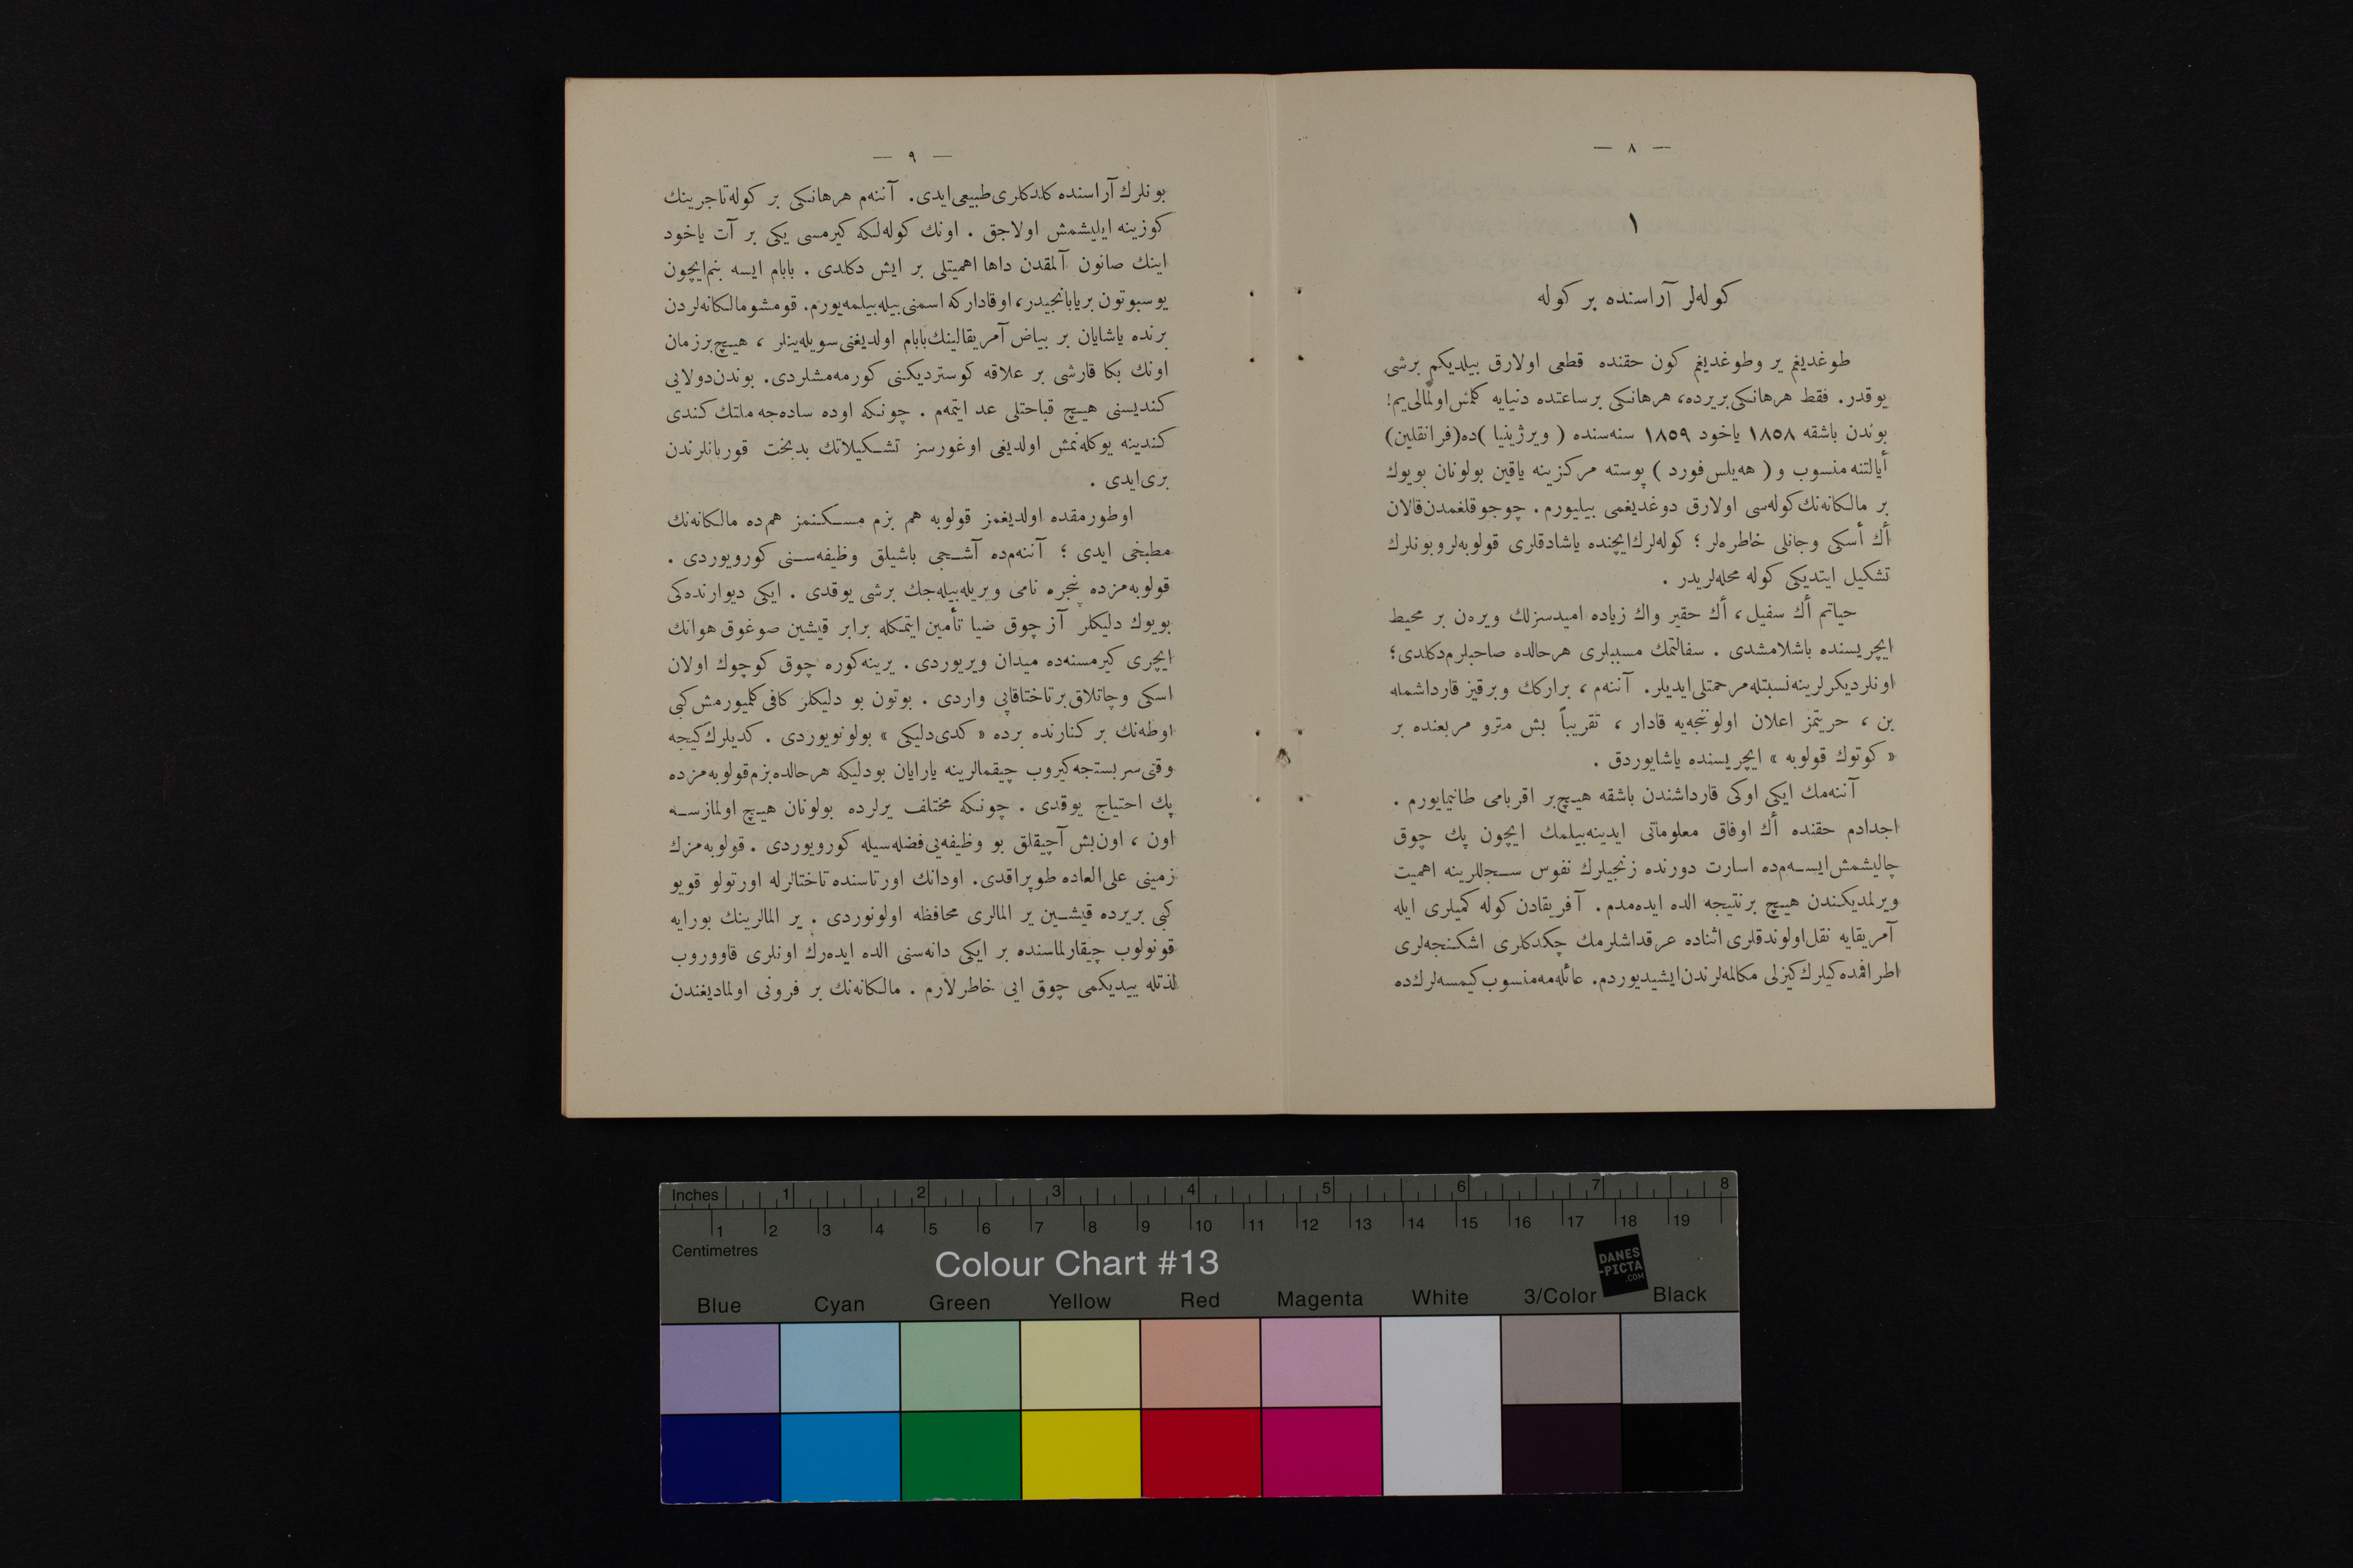 — ٨ —
١
كوله‌لر آراسنده بر كوله
طوغديغم ير وطوغديغم كون حقنده قطعی اولارق بيلديكم برشی
يوقدر. فقط هرهانكی بريرده، هرهانكی برساعتده دنيايه كلمش اولمالی‌يم!
بوندن باشقه ١٨٥٨ ياخود ١٨٥٩ سنه‌سنده ( ويرژينيا )ده(فرانقلين)
أيالتنه منسوب و ( هه‌يلس‌فورد ) پوسته مركزينه ياقين بولونان بويوك
بر مالكانه‌نك كوله‌سی اولارق دوغديغمی بيليورم. چوجوقلغمدن قالان
أك أسكی وجانلی خاطره‌لر ؛ كوله‌لرك ايچنده ياشادقلری قولوبه‌لر وبونلرك
تشكيل ايتديكی كوله محله‌لريدر .
حياتم أك سفيل، أك حقير واك زياده اميدسزلك ويره‌ن بر محيط
ايچريسنده باشلامشدی . سفالتمك مسببلری هرحالده صاحبلرم دكلدی؛
اونلر ديكرلرينه نسبتله مرحمتلی ايديلر. آننه‌م ، براركك وبرقيز قارداشمله
بن ، حريتمز اعلان اولوننجه‌يه قادار ، تقريباً بش مترو مربعنده بر
« كوتوك قولوبه » ايچريسنده ياشايوردق .
آننه‌مك ايكی اوكی قارداشندن باشقه هيچ‌بر اقربامی طانيمايورم .
اجدادم حقنده أك اوفاق معلوماتی ايدينه‌بيلمك ايچون پك چوق
چاليشمش ايسه‌م‌ده اسارت دورنده زنجيلرك نفوس سجللرينه اهميت
ويرلمديكندن هيچ برنتيجه الده ايده‌مدم. آفريقادن كوله كميلری ايله
آمريقايه نقل اولوندقلری اثناده عرقداشلرمك چكدكلری اشكنجه‌لری
اطرافمده‌كيلرك كيزلی مكالمه‌لرندن ايشيديوردم. عائله‌مه منسوب كيمسه‌لرك ده
— ٩ —
بونلرك آراسنده كلدكلری طبيعی ايدی. آننه‌م هرهانكی بر كوله تاجرينك
كوزينه ايليشمش اولاجق . اونك كوله‌لكه كيرمسی يكی بر آت ياخود
اينك صاتون آلمقدن داها اهميتلی بر ايش دكلدی . بابام ايسه بنم ايچون
بوسبوتون بريابانجيدر، اوقاداركه اسمنی بيله بيلمه‌يورم. قومشو مالكانه‌لردن
برنده ياشايان بر بياض آمريقالينك بابام اولديغنی سويله‌ينلر ، هيچ برزمان
اونك بكا قارشی بر علاقه كوسترديكنی كورمه‌مشلردی. بوندن دولايی
كنديسنی هيچ قباحتلی عد ايتمه‌م . چونكه اوده ساده‌جه ملتك كندی
كندينه يوكله‌نمش اولديغی اوغورسز تشكيلاتك بدبخت قوربانلرندن
بری ايدی .
اوطورمقده اولديغمز قولوبه هم بزم مسكنمز هم‌ده مالكانه‌نك
مطبخی ايدی ؛ آننه‌م‌ده آشجی باشيلق وظيفه‌سنی كورويوردی .
قولوبه‌مزده پنجره نامی ويريله‌بيله‌جك برشی يوقدی . ايكی ديوارنده‌كی
بويوك دليكلر آز چوق ضيا تأمين ايتمكله برابر قيشين صوغوق هوانك
ايچری كيرمسنه‌ده ميدان ويريوردی . يرينه كوره چوق كوچوك اولان
اسكی وچاتلاق برتاختا قاپی واردی . بوتون بو دليكلر كافی كلميورمش كبی
اوطه‌نك بر كنارنده برده « كدی دليكی » بولونويوردی . كديلرك كيجه
وقتی سربستجه كيروب چيقمالرينه يارايان بودليكه هرحالده بزم قولوبه‌مزده
پك احتياج يوقدی . چونكه مختلف يرلرده بولونان هيچ اولمازسه
اون ، اون‌بش آچيقلق بو وظيفه‌يی فضله‌سيله كورويوردی . قولوبه‌مزك
زمينی علی‌العاده طوپراقدی. اودانك اورتاسنده تاختالرله اورتولو قويو
كبی بريرده قيشين ير المالری محافظه اولونوردی . ير المالرينك بورايه
قونولوب چيقارلماسنده بر ايكی دانه‌سنی الده ايده‌رك اونلری قاووروب
لذتله ييديكمی چوق ايی خاطرلارم . مالكانه‌نك بر فرونی اولماديغندن
Inches 1 2 3 4 5 6 7 8
1 2 3 4 5 6 7 8 9 10 11 12 13 14 15 16 17 18 19
Centimetres
Colour Chart #13
DANES
-PICTA
.COM
Blue Cyan Green Yellow Red Magenta White 3/Color Black